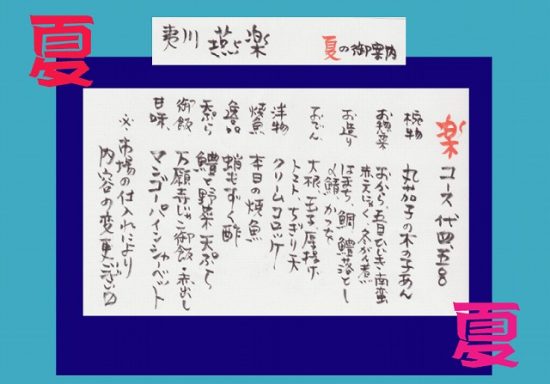 夏
夷川 燕楽
夏の御案内
楽 コース 代四、五〇〇
椀物 丸茄子の木の子あん
お惣菜 おから、五目ひじき、南蛮
赤こんにゃく、冬がん煮
お造り はまち、鯛、鱧落とし
〆鯖、かつお
おでん 大根、玉子、厚揚げ
トマト、ちぎり天
洋物 クリームコロッケ
焼魚 本日の焼魚
逸品 蛸もずく酢
天ぷら 鱧と野菜天ぷら
御飯 万願寺じゃこ御飯・赤出し
甘味 マンゴーパインシャーベット
※市場の仕入れにより
内容の変更ござい〼
夏